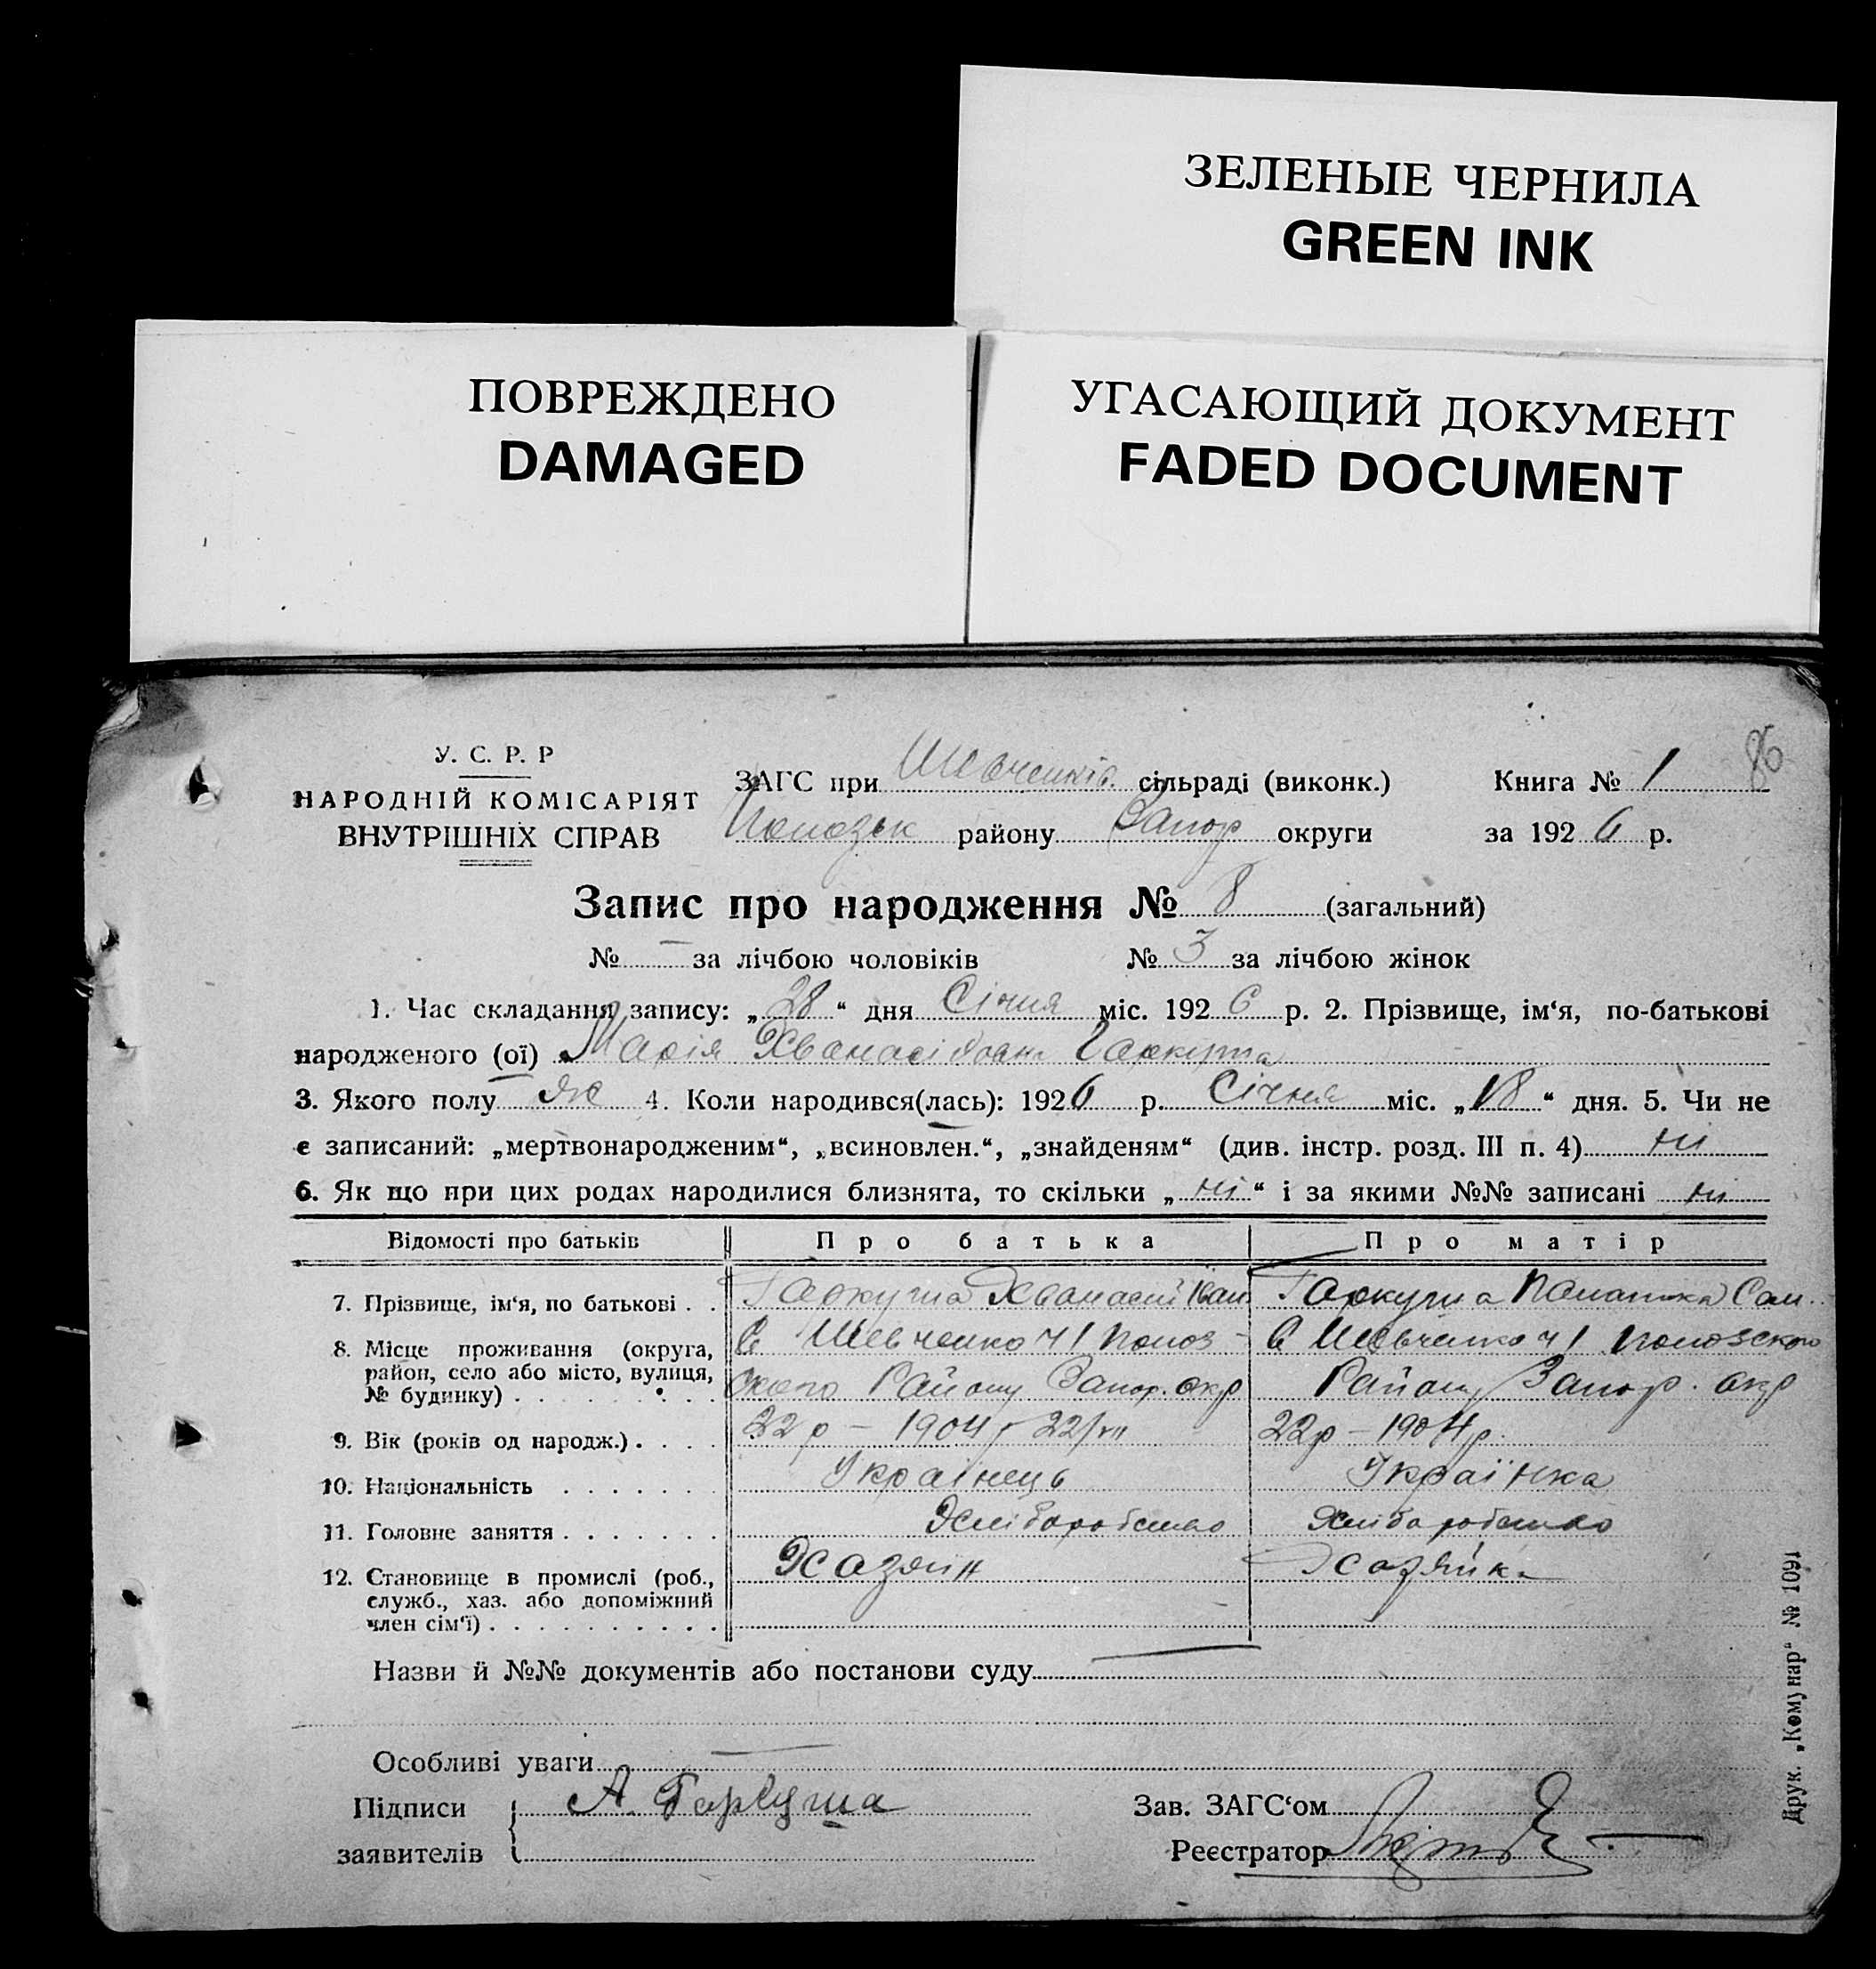 ЗЕЛЕНЫЕ ЧЕРНИЛА
GREEN INK
ПОВРЕЖДЕНО
DAMAGED
УГАСАЮЩИЙ ДОКУМЕНТ
FADED DOCUMENT
86
У. С. Р. Р
НАРОДНІЙ КОМІСАРІЯТ
ВНУТРІШНІХ СПРАВ
ЗАГС при Шевченків. сільраді (виконк.) Книга № 1
району Запор округи за 1926 р.
Запис про народження № 8 (загальний)
№ — за лічбою чоловіків № 3 за лічбою жінок
1. Час складання запису: „28“ дня Січня міс. 1926 р. 2. Прізвище, ім‘я, по-батькові
народженого (ої) Марія Хванасівна Гаркуша
3. Якого полу Ж 4. Коли народився(лась): 1926 р. Січня міс. „18“ дня. 5. Чи не
є записаний: „мертвонародженим“, „всиновлен.“, „знайденям“ (див. інстр. розд. III п. 4) ні
6. Як що при цих родах народилися близнята, то скільки „ні“ і за якими №№ записані ні
Відомості про батьків Про батька Про матір
7. Прізвище, ім‘я, по батькові . . Гаркуша Хванасий Іван Гаркуша Сам.
8. Місце проживання (округа, район, село або місто, вулиця, № будинку) . . . . . . . .
С Шевченко ч/ Попов-
ского Району Запор. окр
С Шевченко ч/ Поповского
Району Запор. окр
9. Вік (років од народж.) . . . . 22 р — 1904 р 22/VII 22р — 1904р.
10. Національність . . . . . . . Українець Українка
11. Головне заняття . . . . . . . Хліборобство Хліборобство
12. Становище в промислі (роб., служб., хаз. або допоміжний член сім‘ї) . . . . . . . . . . Хазяїн Хазяйка
Назви й №№ документів або постанови суду —
Особливі уваги —
Підписи А. Гаркуша Зав. ЗАГС‘ом
заявителів Реєстратор
Друк. „Комунар“ № 1091